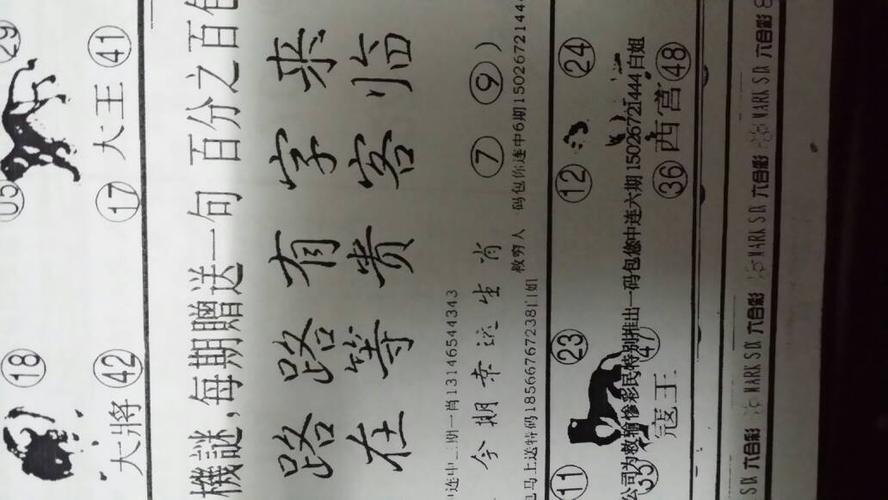 05 29
18
大將 42 17 大王 41
機謎,每期贈送一句 百分之百包
路路有字来
在等贵客临
连中二期一肖13146544343
今期幸运生肖 ⑦ ⑨)
马上送特码18566767238 救穷人 码包你连中6期15026721444
11 23 12 24
公司为救输惨彩民特别推出一码包您中连六期15026721444白姐
35 寇王 47 36 西宫 48
SIX 六合彩 MARK SIX 六合彩 MARK SIX 六合彩 MARK SIX 六合彩